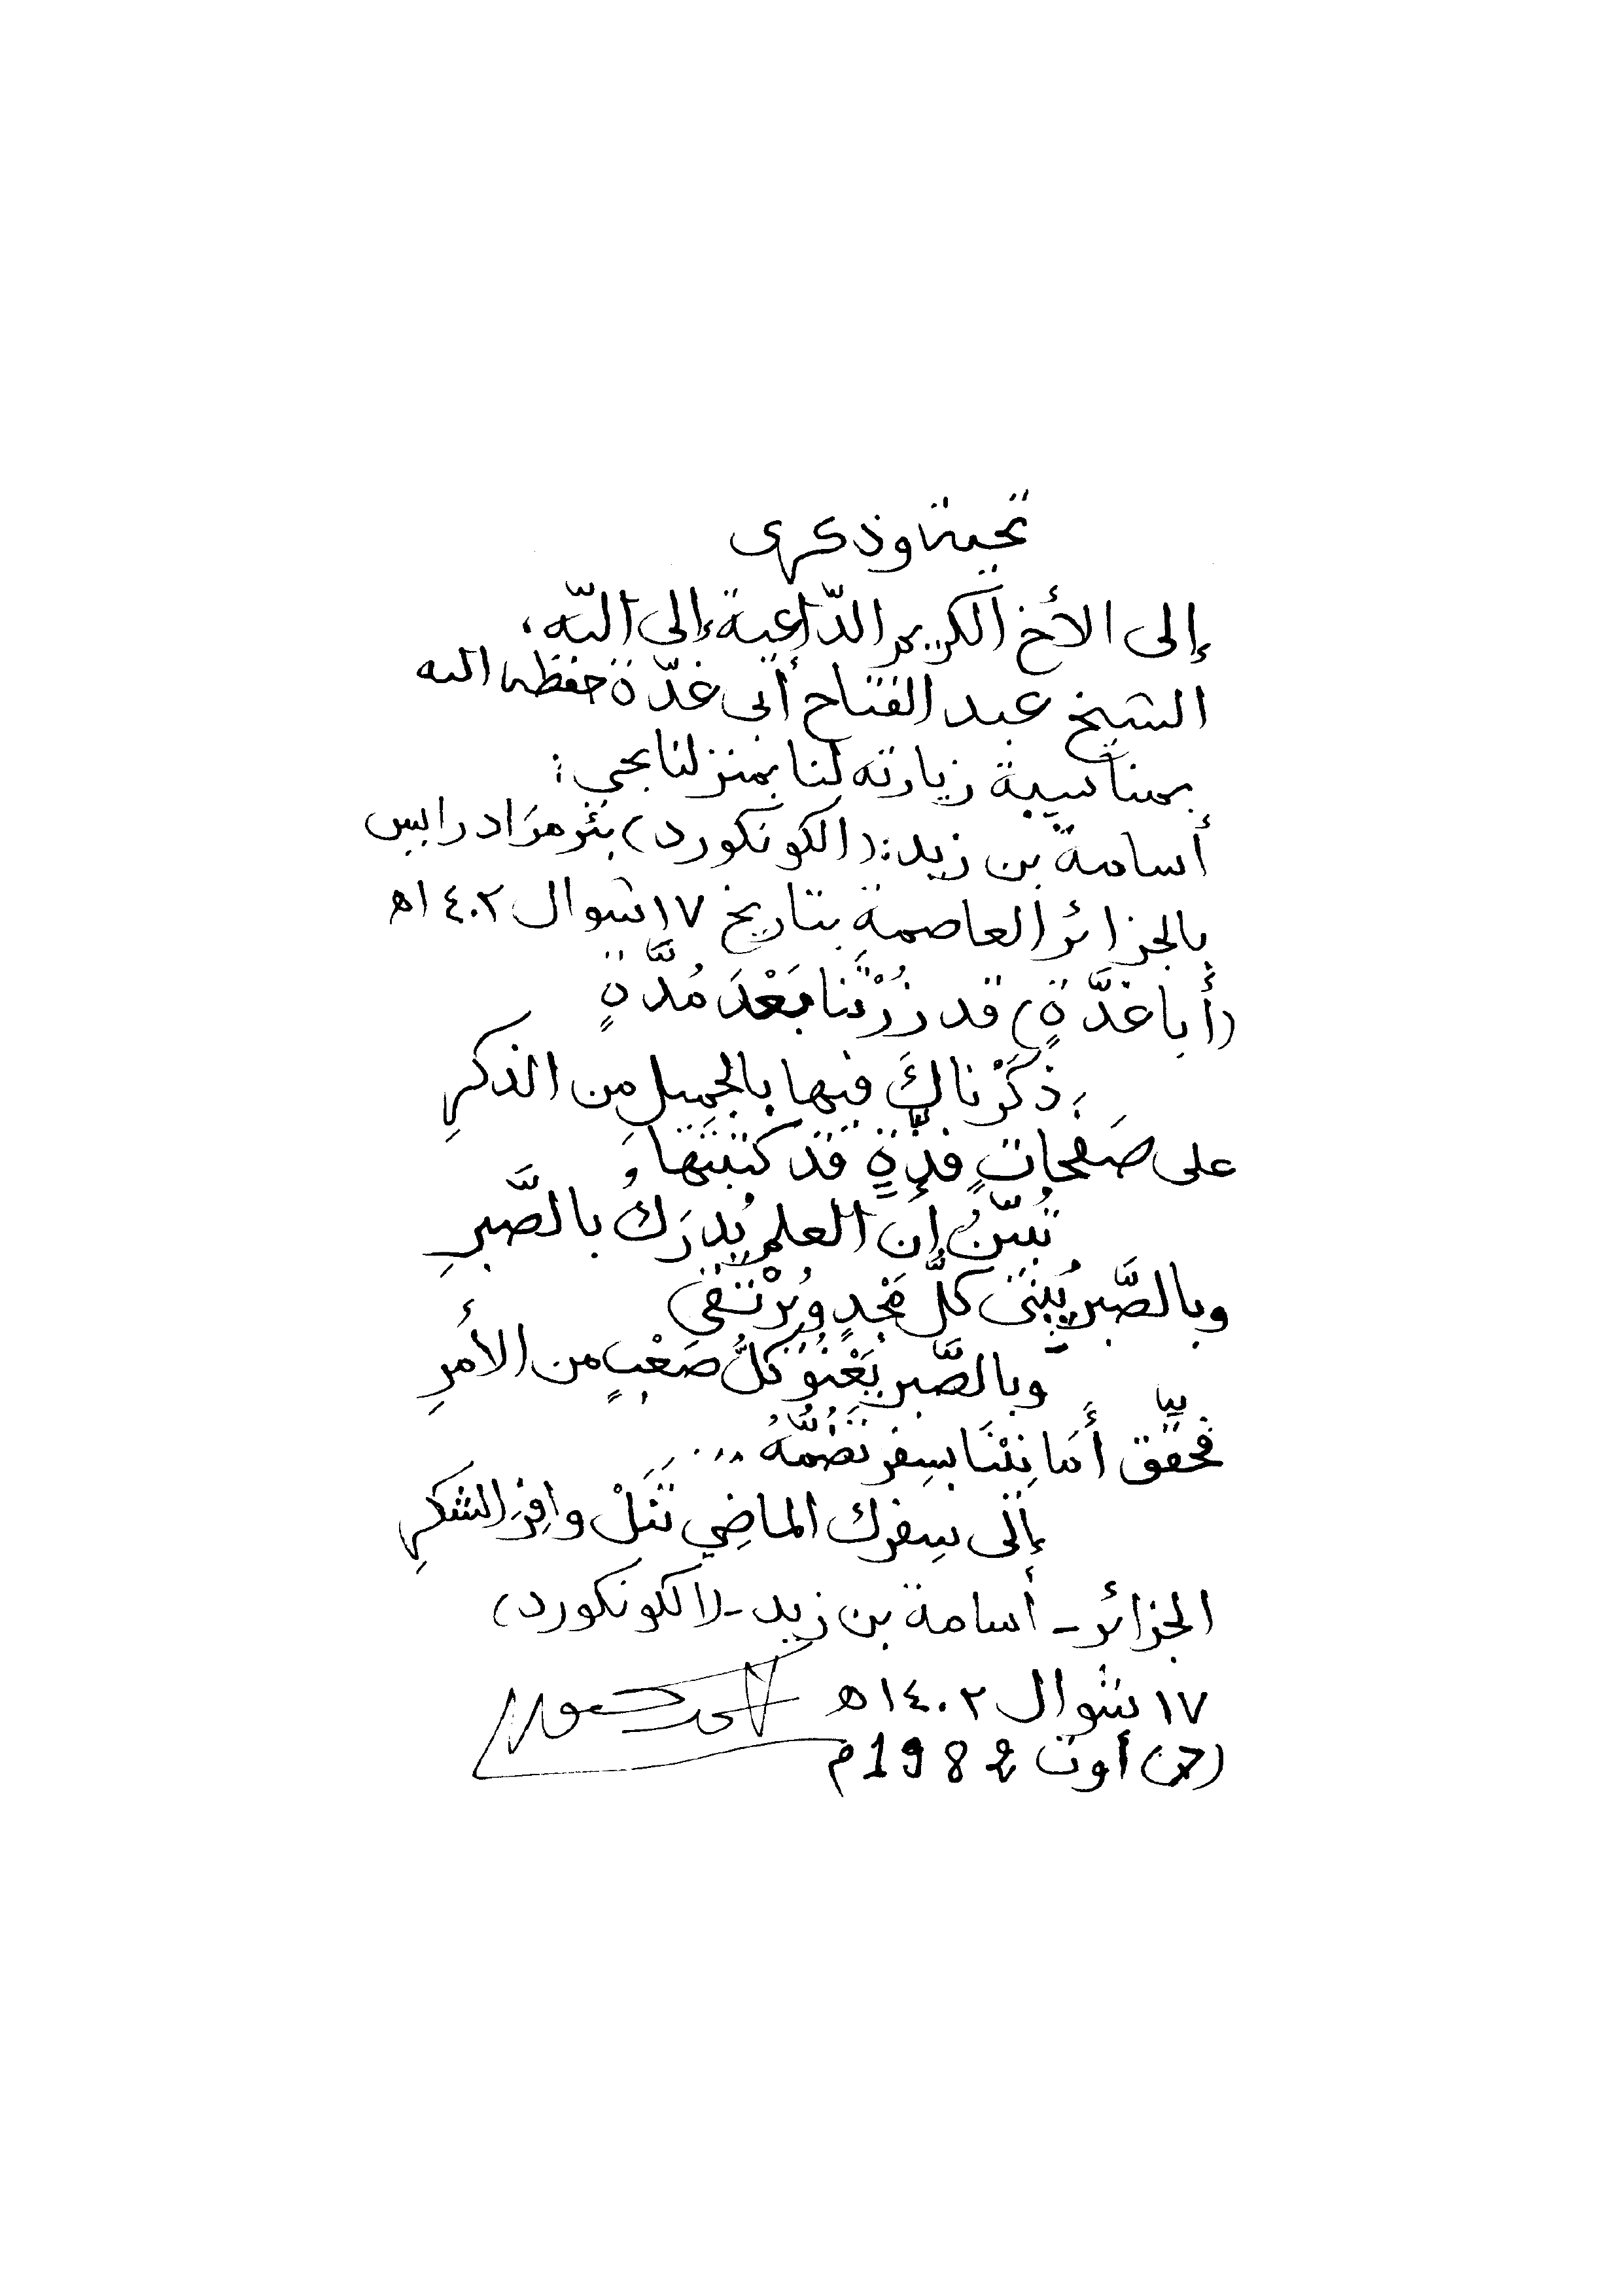 تحية وذكرى
إلى الأخ الكريم الدّاعية إلى اللّه،
الشيخ عبد الفتاح أبي غدّة حفظه الله
بمناسبة زيارته لنا بمنزلنا بحي:
أسامة بن زيد: (الكونكورد) بئر مرَاد رايس
بالجزائر العاصمة بتاريخ ١٧ شوال ١٤٠٢ه
(أبا غدَّةٍ) قد زُرْتَنا بَعْدَ مُدَّةٍ
ذكَرْناكَ فيها بالجميلِ من الذكرِ
على صَفَحاتٍ فذَّةٍ قَد كتَبْتَها
تُبَيّنُ أن العلم يُدرَكُ بالصَّبرِ
وبالصَّبر يُبْنَى كلُّ مَجْدٍ ويُرْتَقَى
وبالصَّبر يَعْنُو كلُّ صَعْبٍ من الأمرِ
فحقِّق أَمَانِيْنَا بسِفر تَضُمُّهُ ...
إلى سِفرك الماضِي تَنَلْ وافِرَ الشكرِ
الجزائر - أسامة بن زيد - (الكونكورد)
١٧ شوال ١٤٠٢ه
أوت 1982م